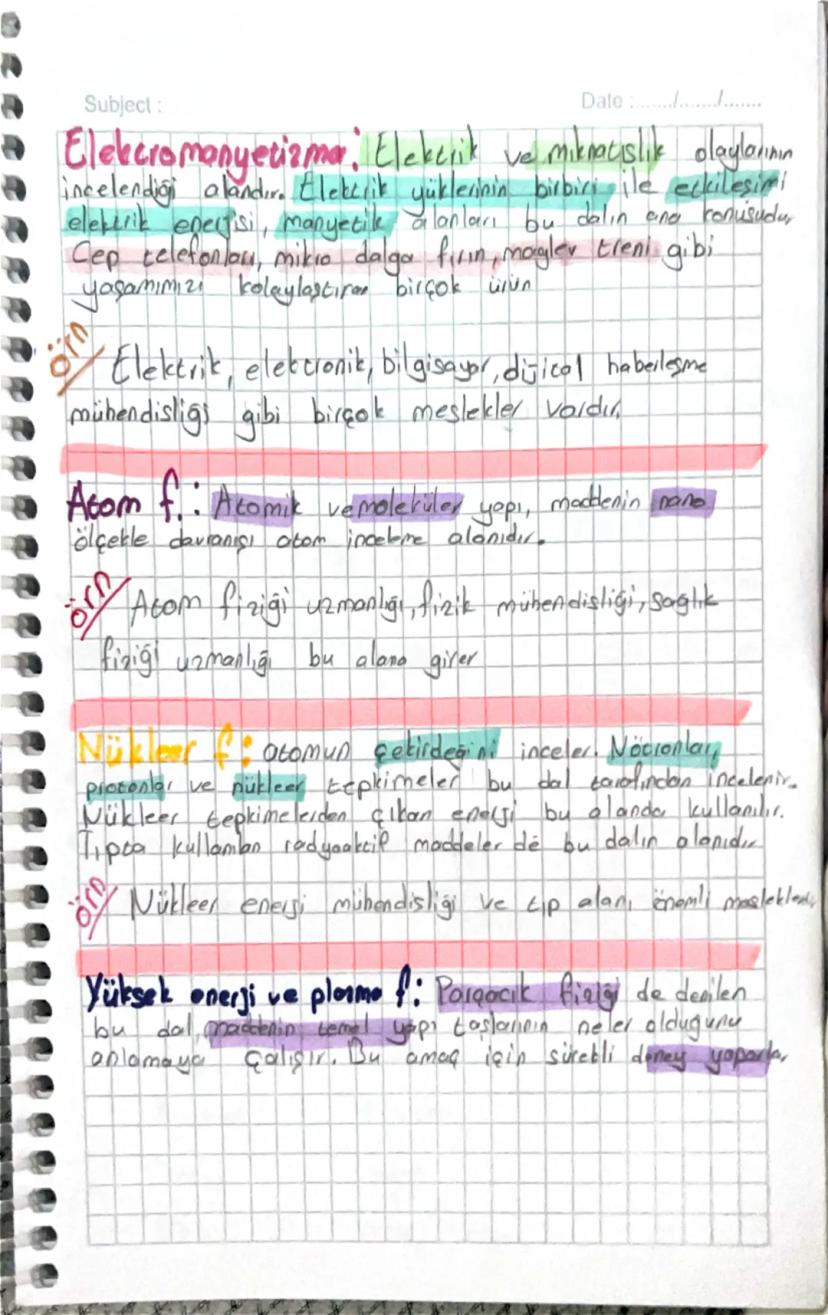 Subject :
Date :......./......./.......
Elektromanyetizma: Elektrik ve mıknatıslık olaylarının
incelendiği alandır. Elektrik yüklerinin birbiri ile etkileşimi
elektrik enerjisi, manyetik alanları bu dalın ana konusudur.
Cep telefonları, mikro dalga fırın, maglev treni gibi
yaşamımızı kolaylaştıran birçok ürün
örn
Elektrik, elektronik, bilgisayar, dijital haberleşme
mühendisliği gibi birçok meslekler vardır.
Atom f.: Atomik ve moleküler yapı, maddenin nano
ölçekte davranışı atom inceleme alanıdır.
örn
Atom fiziği uzmanlığı, fizik mühendisliği, sağlık
fiziği uzmanlığı bu alana girer
Nükleer f: atomun çekirdeğini inceler. Nötronlar,
protonlar ve nükleer tepkimeler bu dal tarafından incelenir.
Nükleer tepkimelerden çıkan enerji bu alanda kullanılır.
Tıpta kullanılan radyoaktif maddeler de bu dalın alanıdır
örn
Nükleer enerji mühendisliği ve tıp alanı önemli meslekleri
Yüksek enerji ve plazma f: Parçacık fiziği de denilen
bu dal, maddenin temel yapı taşlarının neler olduğunu
anlamaya çalışır. Bu amaç için sürekli deney yaparlar